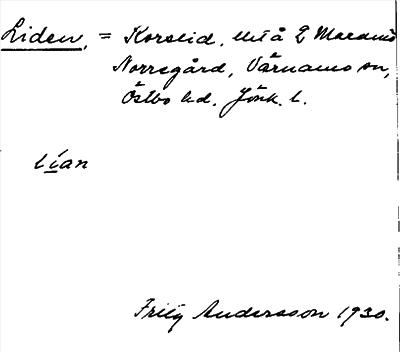 Liden, = Korseid, utå 2 Maramö
Norregård, Värnamo sn,
Östbo hd. Jönk. l.
lían
Fritz Andersson 1930.